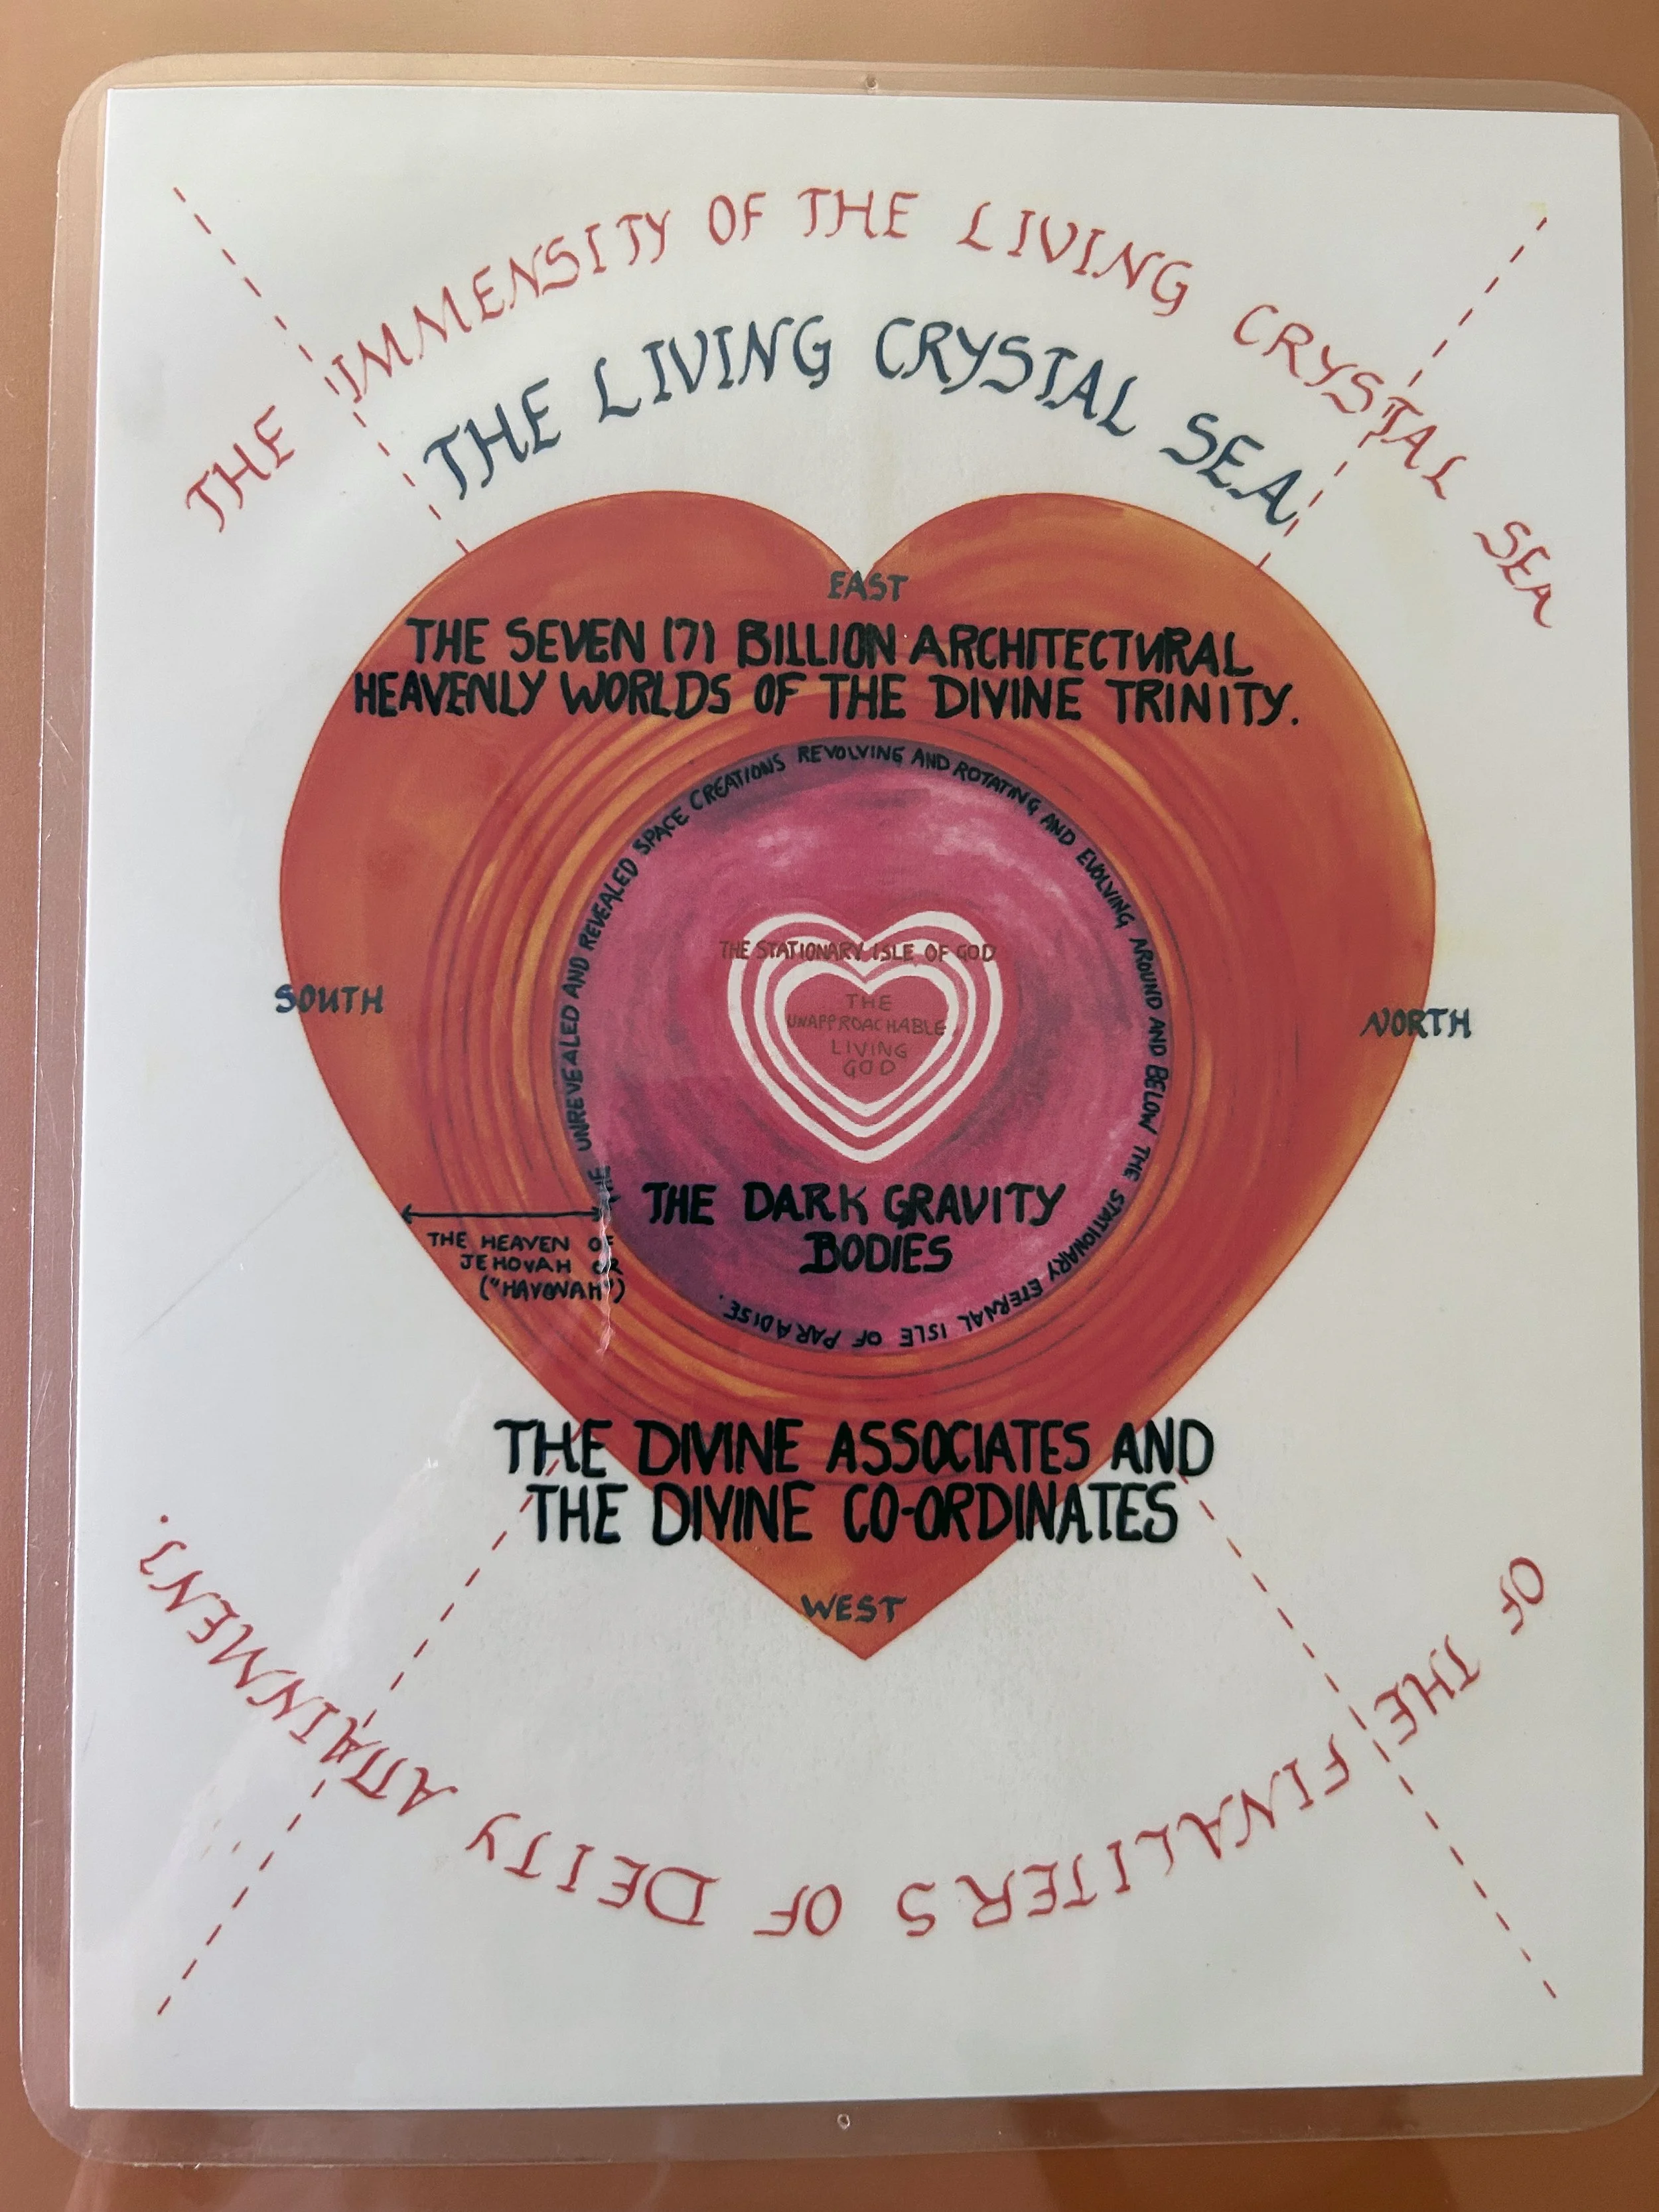 THE IMMENSITY OF THE LIVING CRYSTAL SEA
THE LIVING CRYSTAL SEA
EAST
THE SEVEN (7) BILLION ARCHITECTURAL
HEAVENLY WORLDS OF THE DIVINE TRINITY.
THE UNREVEALED AND REVEALED SPACE CREATIONS REVOLVING AND ROTATING AND EVOLVING AROUND AND BELOW THE STATIONARY ETERNAL ISLE OF PARADISE.
THE STATIONARY ISLE OF GOD
THE
UNAPPROACHABLE
LIVING
GOD
SOUTH
NORTH
THE DARK GRAVITY
BODIES
THE HEAVEN OF
JEHOVAH OR
("HAVONAH")
THE DIVINE ASSOCIATES AND
THE DIVINE CO-ORDINATES
WEST
OF THE FINALITERS OF DEITY ATTAINMENT.